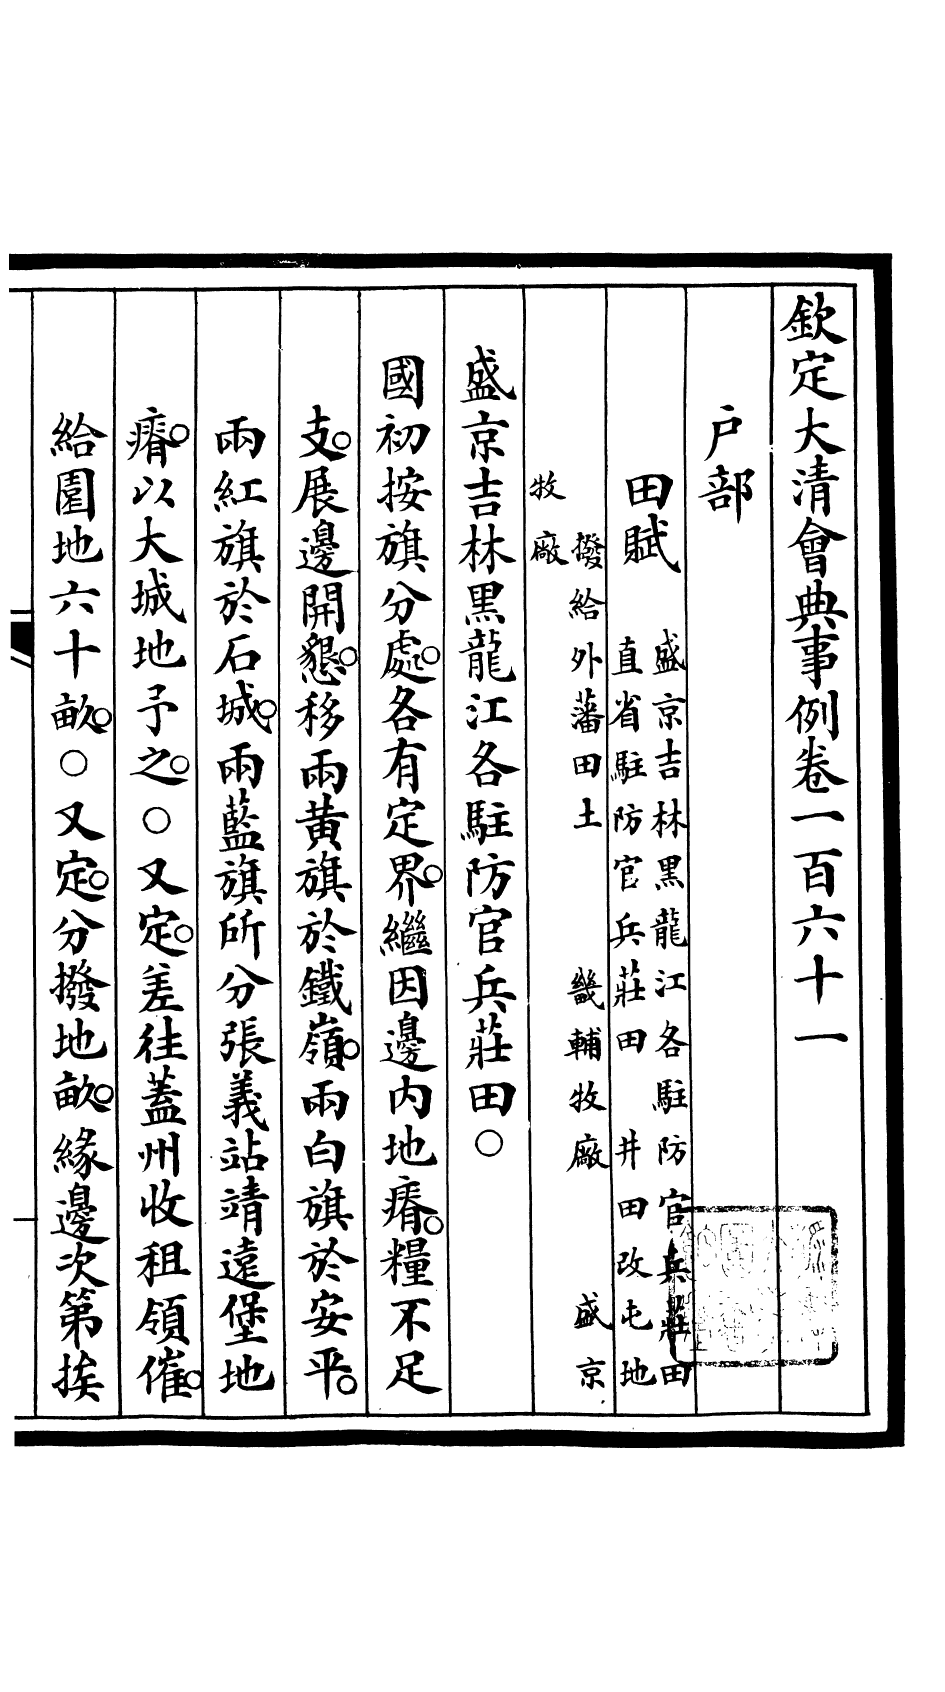 欽定大清會典事例卷一百六十一
户部
田賦
盛京吉林黑龍江各駐防官兵莊田
直省駐防官兵莊田 井田改屯地
撥給外藩田土 畿輔牧廠 盛京
牧廠
盛京吉林黑龍江各駐防官兵莊田○
國初按旗分處。各有定界。繼因邊内地瘠。糧不足
支。展邊開懇。移兩黄旗於鐵嶺。兩白旗於安平。
兩紅旗於石城。兩藍旗所分張義站靖遠堡地
瘠。以大城地予之。○又定。差往蓋州收租領催。
給園地六十畝。○又定。分撥地畝。緣邊次第挨